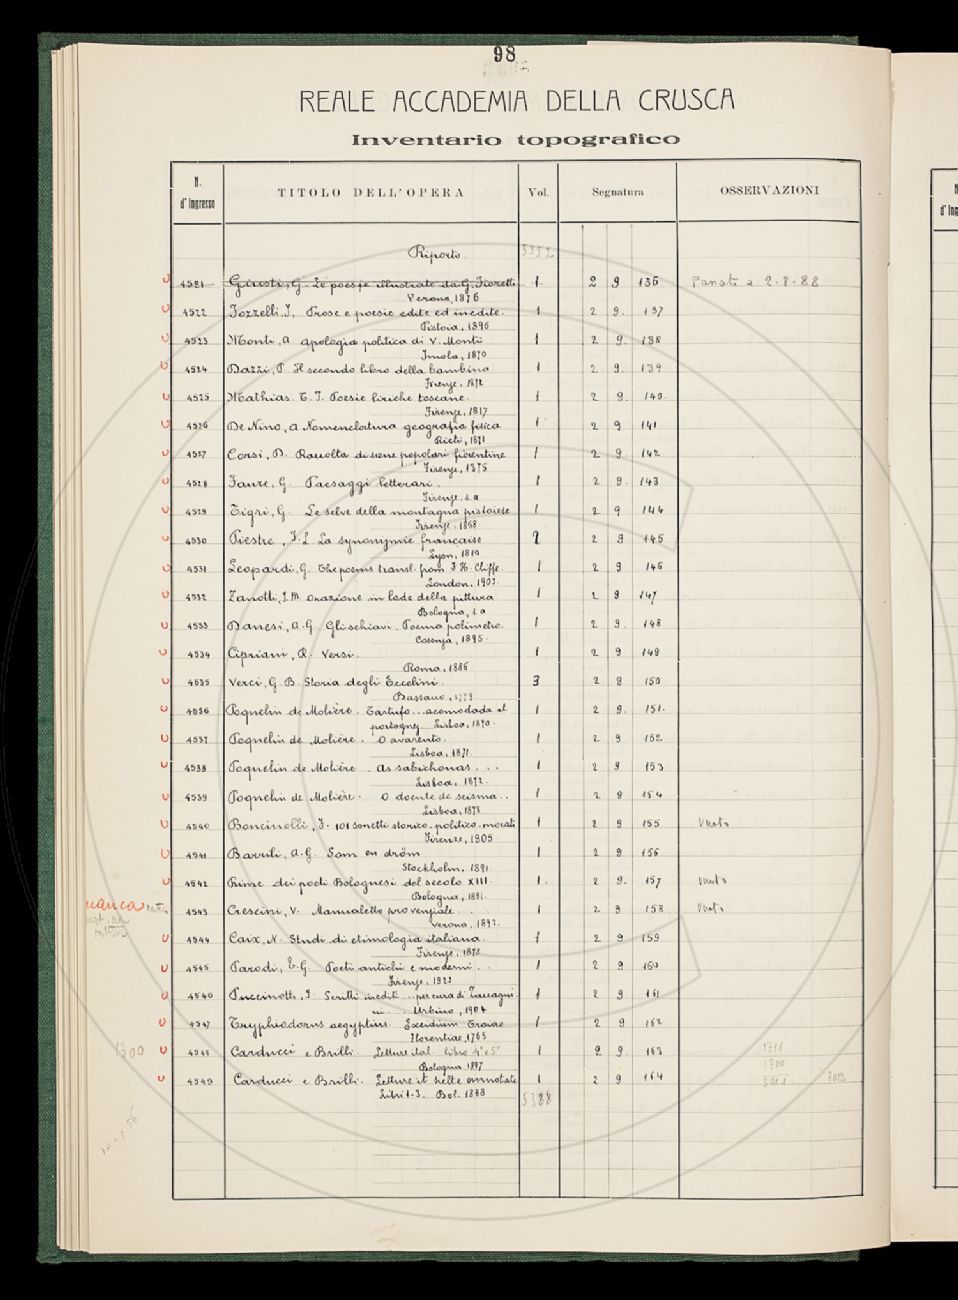 98
REALE ACCADEMIA DELLA CRUSCA
Inventario topografico
N. d'Ingresso TITOLO DELL'OPERA Vol. Segnatura OSSERVAZIONI
Riporto. 5352
4521 Giusti, G. Le poesie illustrate da G. Fioretti 1 2 9 136 2-8-88
Verona, 1876
4522 Tozzelli, I, Prose e poesie edite ed inedite. 1 2 9. 137
Pistoia, 1896
4523 Monti, A. Apologia politica di V. Monti 1 2 9. 138
Imola, 1870
4524 Bazzi, T. Il secondo libro della bambina 1 2 9. 139
Firenze, 1872
4525 Mathias. T. I. Poesie liriche toscane. 1 2 9. 140.
Firenze, 1817
4526 De Nino, A Nomenclatura geografia fisica 1 2 9 141
Rieti, 1871
4527 Corsi, B. Raccolta di scene popolari fiorentine 1 2 9. 142
Firenze, 1875
4528 Faure, G. Paesaggi letterari. 1 2 9. 143
Firenze. s.a
4529 Tigri, G. Le selve della montagna pistoiese 1 2 9 144
Firenze. 1868
4530 Piestre, J. L La synonymie française 2 2 9 145
Lyon, 1810
4531 Leopardi, G. The poems transl. from J. H. Cliffe. 1 2 9 146
London, 1903.
4532 Zanotti, F. M. Orazione in lode della pittura 1 2 9 147
Bologna, s a
4533 Danesi, A. G. Gli schiavi. Poema polimetro. 1 2 9. 148
Cosenza, 1895.
4534 Cipriani, R. Versi. 1 2 9 149
Roma, 1886
4535 Verci, G. B. Storia degli Eccelini. 3 2 9 150
Bassano, 1779
4536 Poquelin de Molière. Tartufo... acomodada al 1 2 9. 151.
portoguez Lisboa, 1870.
4537 Poquelin de Molière. O avarento. 1 2 9 152
Lisboa, 1871.
4538 Poquelin de Molière. As sabichonas... 1 2 9 153
Lisboa, 1872.
4539 Poquelin de Molière. O doente de scisma.. 1 2 9 154
Lisboa, 1878
4540 Boncinelli, F. 101 sonetti storico-politico-morali 1 2 9 155 Vuoto
Firenze, 1905
4541 Barrili, A. G. Som en dröm 1 2 9 156
Stockholm, 1891.
4542 Rime dei poeti Bolognesi del secolo XIII. 1. 2 9. 157 Vuoto
Bologna, 1881.
manca 4543 Crescini, V. Manualetto provenzale. . . 1 2 9 158 Vuoto
Verona, 1892.
4544 Caix, N. Studi di etimologia italiana. 1 2 9 159
Firenze. 1878
4545 Parodi, E. G. Poeti antichi e moderni. . 1 2 9 160
Firenze. 1923
4546 Puccinotti, F. Scritti inediti .. per cura di Zaccagni 1 2 9 161
ni. . Urbino, 1904
4547 Tryphiodorus aegyptius. Excidium Troiae 1 2 9 162
Florentiae, 1765
1300 4548 Carducci e Brilli. Letture ital. libro 4° e 5° 1 2 9. 163
Bologna 1897
1711
1300
3012
4549 Carducci e Brilli. Letture it. scelte annotate 1 2 9 164
Libri 1-3. Bol. 1883
5388